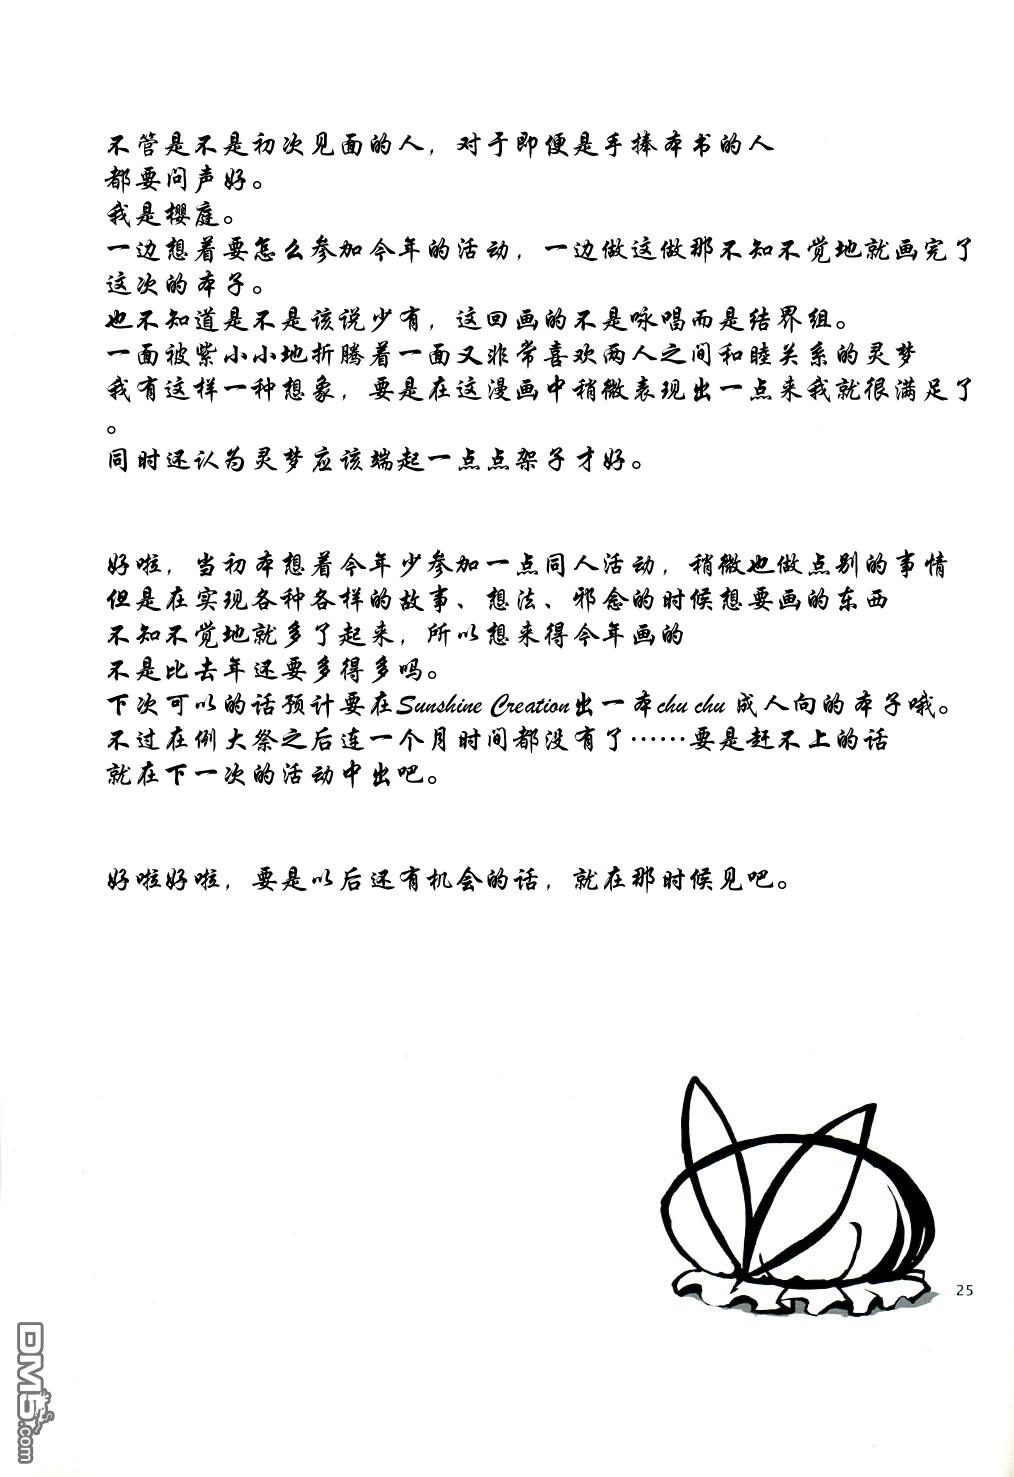 不管是不是初次见面的人，对于即便是手捧本书的人
都要问声好。
我是樱庭。
一边想着要怎么参加今年的活动，一边做这做那不知不觉地就画完了
这次的本子。
也不知道是不是该说少有，这回画的不是咏唱而是结界组。
一面被紫小小地折腾着一面又非常喜欢两人之间和睦关系的灵梦
我有这样一种想象，要是在这漫画中稍微表现出一点来我就很满足了
。
同时还认为灵梦应该端起一点点架子才好。
好啦，当初本想着今年少参加一点同人活动，稍微也做点别的事情
但是在实现各种各样的故事、想法、邪念的时候想要画的东西
不知不觉地就多了起来，所以想来得今年画的
不是比去年还要多得多吗。
下次可以的话预计要在Sunshine Creation出一本chu chu 成人向的本子哦。
不过在例大祭之后连一个月时间都没有了……要是赶不上的话
就在下一次的活动中出吧。
好啦好啦，要是以后还有机会的话，就在那时候见吧。
25
DM5.com